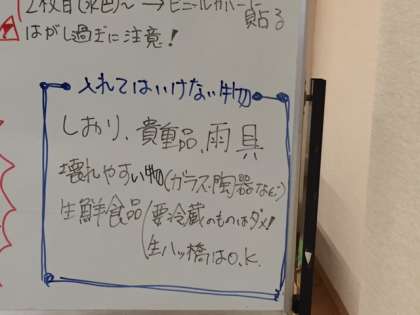 2枚目(水色)~ → ビニールカバーに貼る
はがし過ぎに注意!
入れてはいけない物
しおり、貴重品、雨具
壊れやすい物(ガラス・陶器など)
生鮮食品(要冷蔵のものはダメ!
生八ッ橋はO.K.